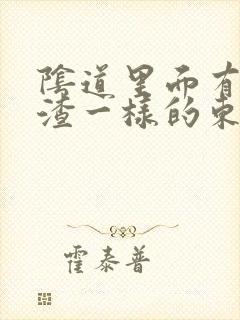 陰道里面有
渣一樣的東
霍泰普